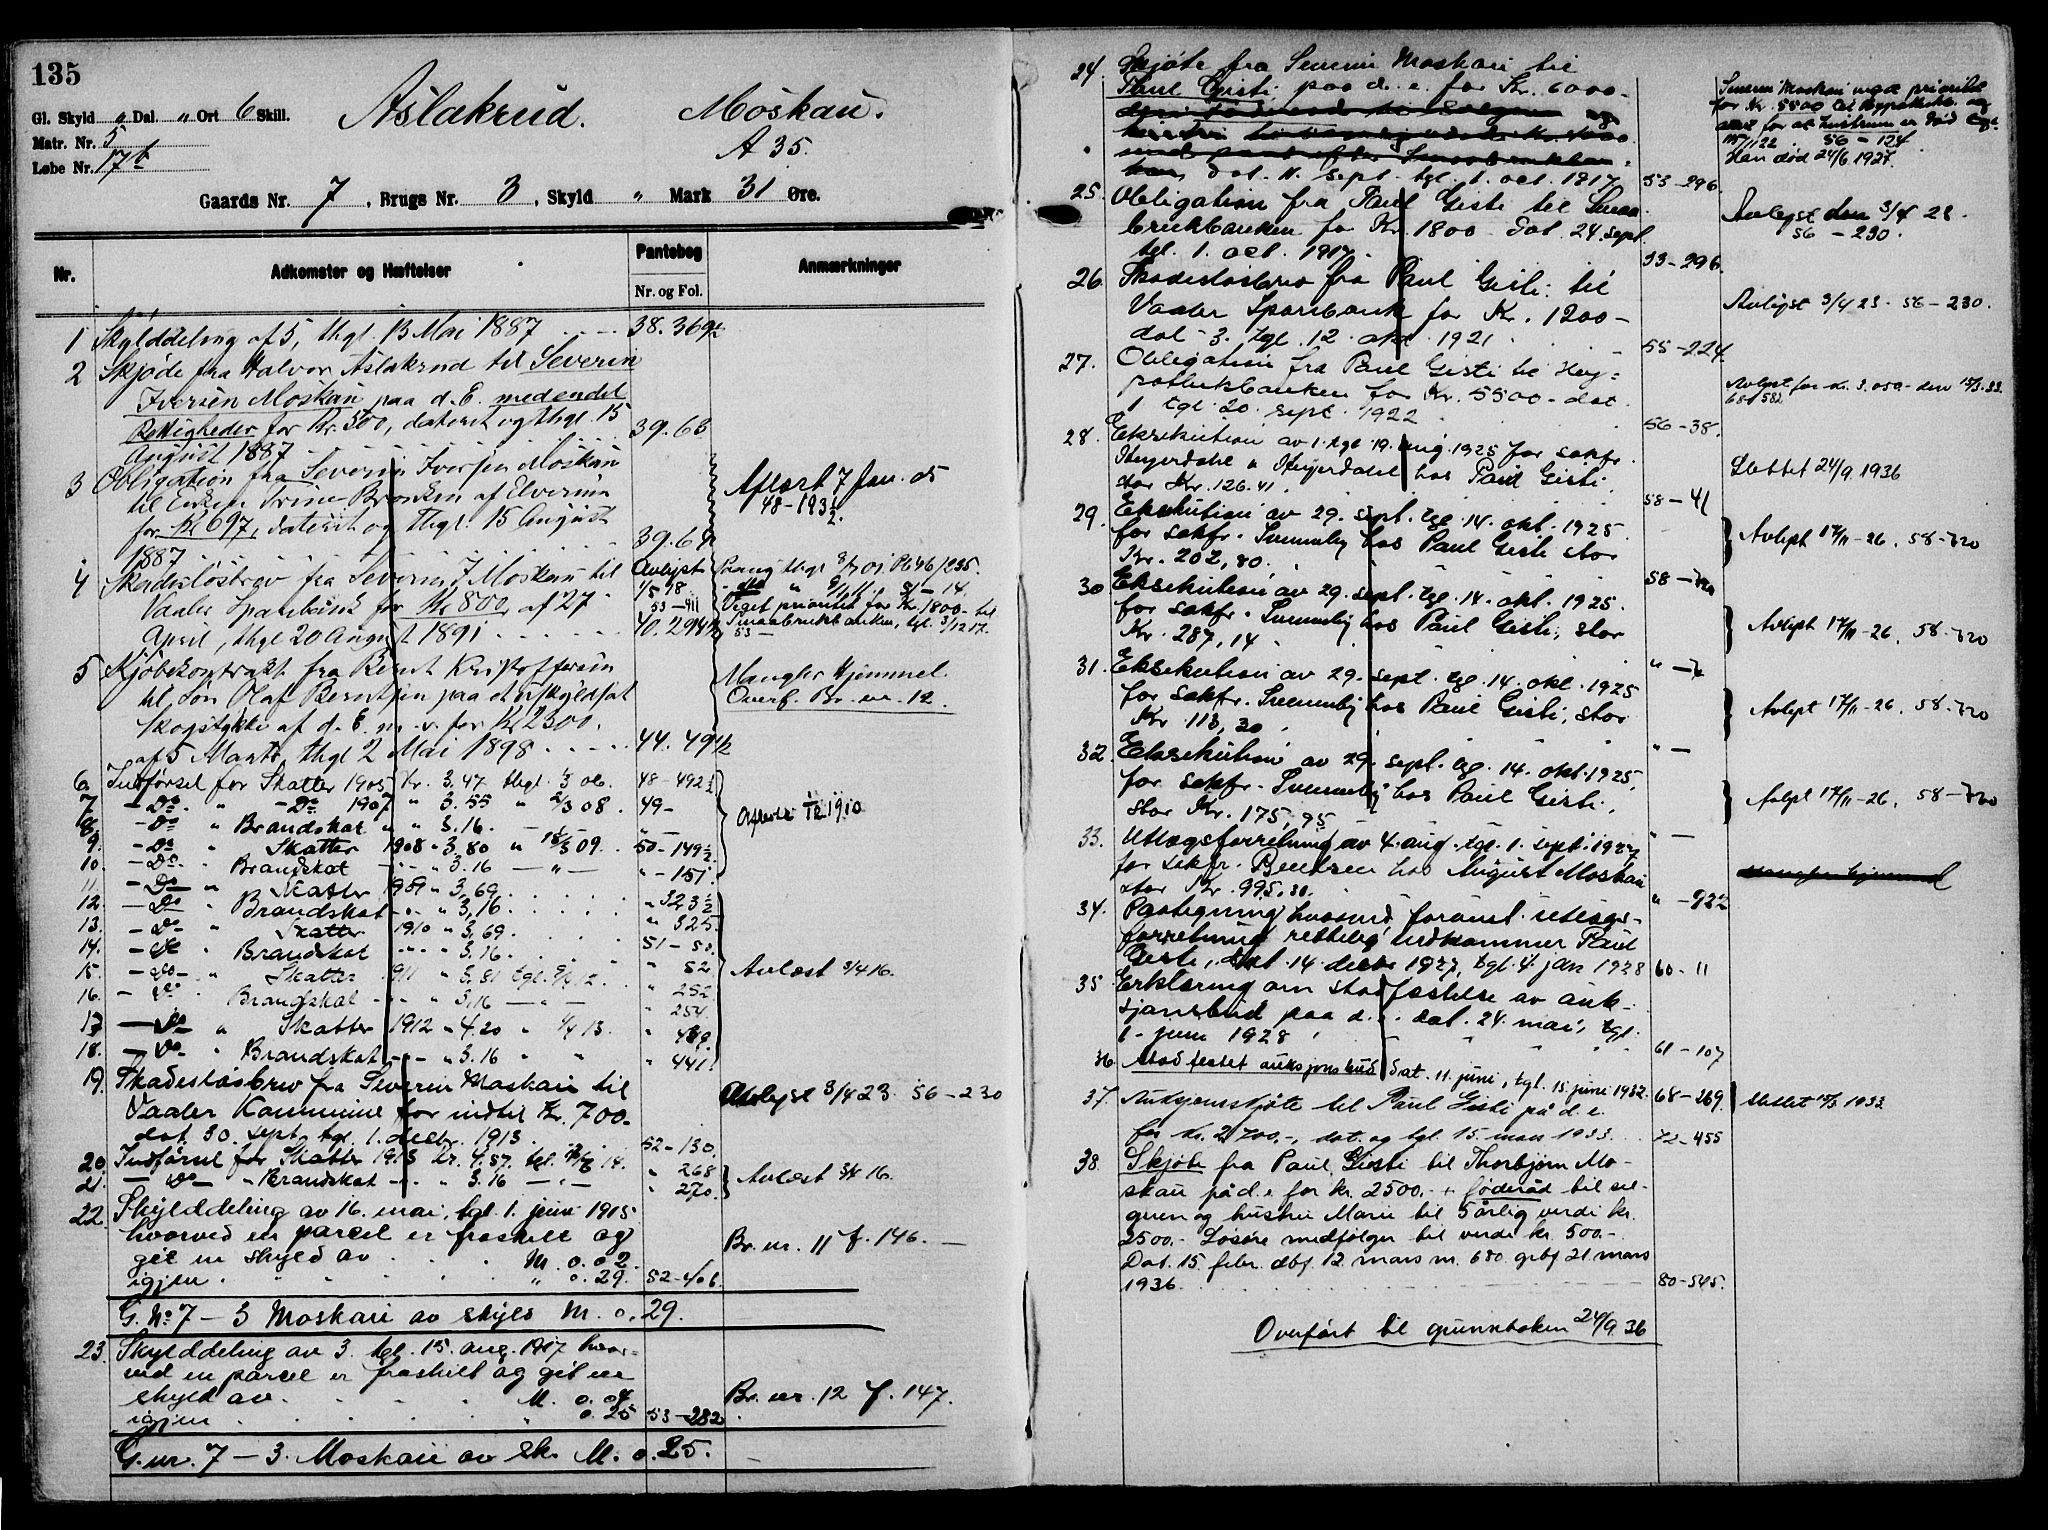 135
Gl. Skyld " Dal. " Ort 6 Skill.
Matr. Nr. 5
Løbe Nr. 17b
Aslakrud. Moskau.
A 35.
Gaards Nr. 7, Brugs Nr. 3, Skyld " Mark 31 Øre.
Nr. Adkomster og Hæftelser Pantebog Anmærkninger
Nr. og Fol.
1 Skylddeling af 5, thgl. 13 Mai 1887 38. 369
2 Skjøde fra Halvor Aslakrud til Severin
Iversen Moskau paa d. E. med endel
Rettigheder for Kr. 500, dateret og thgl. 15
August 1887 39. 63
3 Obligation fra Severin Iversen Moskau
til Enken Trine Bronken af Elverum
for Kr 697, dateret og thgl. 15 August
1887 39. 64
Aflæst 7 Jan. 05
48-193½
4 Skadesløsbrev fra Severin I Moskau til
Vaaler Sparebank for Kr 800 af 27
April, thgl 20 August 1891 40. 294
Avlyst
1/5 18
53-411
Viget prioritet for Kr. 1800 - til
Smaabrukbanken, tgl. 3/12 17.
53 -
5 Kjøbekontrakt fra Bernt Kristoffersen
til Søn Olaf Berntsen paa et uskyldsat
Skogstykke af d. E. m. v. for Kr 2300.
af 5 Marts, thgl 2 Mai 1898 44. 491½
Mangler Hjemmel.
Overf. Br. nr. 12.
6. Indførsel for Skatter 1905 Kr. 3.47 thgl. 1/3 06. 48-492½
7 - Do. " - Do 1907 " 3.55 " 2/3 08. 49-
8. - Do " Brandskat " " 3.16. - " -
9. - Do " Skatter 1908 " 3.80 " 18/3 09. 50-149½
10. - Do. " Brandskat - " 3.16 - " - " -151.
11. - Do - " Skatter 1909 " 3,69. " 323½
12. - Do - " Brandskat - " 3,16. " 325.
13. - Do - " Skatter 1910 " 3,69. 51-50.
14. - Do " Brandskat " 3.16. " 52.
15. - Do - " Skatter 1911 " 3.81 tgl. 9/4 12. " 252.
16. - Do " Brandskat - " 3,16 - " - " 254.
17 - Do " Skatter 1912 " 4.20 " 1/4 13. " 439.
18. - Do - " Brandskat - " 3.16 " " " 441.
Avlæst 3/4 16.
19. Skadesløsbrev fra Severin Moskau til
Vaaler Kommune for indtil Kr. 700-
dat. 30. sept. tgl. 1. decbr. 1913. 52-130.
Avlyst 3/4 23. 56-230
20. Indførsel for Skatter 1913 Kr. 4.57. tgl. 14. " 268
21. - Do - " Brandskat - " 3.16 - " - " 270.
Avlæst 3/4 16.
22. Skylddeling av 16. mai, tgl. 1. juni 1915
hvorved en parcel er fraskilt og
git en skyld av M. 0.02
igjen " 0.29. 52-406.
Br. nr. 11 f. 146. -
G. No 7 - 3 Moskau av skyld M. 0.29.
23. Skylddeling av 3. tgl. 15. aug. 1917 hvor-
ved en parcel er fraskilt og git en
skyld av M. 0.04
igjen 0.25 53-282
Br. nr. 12 f. 147.
G. nr. 7 - 3. Moskau av sk. M. 0.25.
24 Skjøte fra Severin Moskau til
Paul Gisti paa d. e. for Kr. 6000-
dat. 11. sept. tgl. 1. oct. 1917 53-296.
Severin Moskau veget prioritet
for Kr. 5500 til Hypothekb. og
for at hustruen er død tgl.
56-124
Han død 24/6 1927.
25. Obligation fra Paul Gisti til Smaa-
brukbanken for Kr. 1800 - Dat. 24. sept.
tgl. 1. oct. 1917. 53-296
Avlyst den 3/4 23.
56-230.
26. Skadesløsbrev fra Paul Gisti til
Vaaler Sparebank for Kr. 1200-
dat - 3. tgl. 12. okt. 1921. 55-224.
Avlyst 3/4 23. 56-230.
27. Obligation fra Paul Gisti til Hy-
pothekbanken for Kr. 5500 - dat.
1. tgl. 20. sept. 1922 56-38.
Avlyst for kr. 3.050 - den 15/3.33.
68-582
28. Eksekution av 1. tgl. 19. aug. 1925 for sakfr.
Heyerdahl & Heyerdahl hos Paul Gisti.
stor Kr. 126.41. 58-41
Slettet 24/9 1936
29. Eksekution av 29. sept. tgl. 14. okt. 1925.
for sakfr. Svenneby hos Paul Gisti stor
Kr. 202,80. 58-
Avlyst 17/11-26, 58-720
30 Eksekution av 29. sept. tgl. 14. okt. 1925.
for sakfr. Svenneby hos Paul Gisti, stor
Kr. 287,14. " -
Avlyst 17/11-26, 58-720
31. Eksekution av 29. sept. tgl. 14. okt. 1925
for sakfr. Svenneby hos Paul Gisti, stor
Kr 113,30. " -
Avlyst 17/11-26, 58-720
32. Eksekution av 29. sept. tgl. 14. okt. 1925,
for sakfr. Svenneby hos Paul Gisti,
stor Kr. 175,95 " -
Avlyst 17/11-26, 58-720
33. Utlægsforretning av 4. aug. tgl. 1. sept. 1927
for sakfr. Bentsen hos August Moskau
stor Kr. 995,30. " -922
34. Paategning hvorved foranst. utlægs-
forretning rettelig vedkommer Paul
Gisti, Dat. 14. decbr 1927, tgl. 4. jan 1928 60-11
35. Erklæring om stadfæstelse av auk-
sjonsbud paa d. e. dat. 24. mai, tgl.
1. juni 1928 61-107
36. Stadfestet auksjonsbud Dat. 11. juni, tgl. 15. juni 1932. 68-269. Slettet 1933
37. Auksjonsskjøte til Paul Gisti på d. e.
for kr. 2700.-, dat. og tgl. 15. mars 1933. 72-455
38. Skjøte fra Paul Gisti til Thorbjørn Mo-
skau på d. e for kr. 2500.- + føderåd til sel-
geren og hustru Marie til 5 årlig verdi kr.
2500.- Løsøre medfølger til verdi kr. 500.-
Dat. 15. febr. dbf. 12. mars nr. 680 grbf 21 mars
1936. 80-545.
Overført til grunnboken 24/9 36